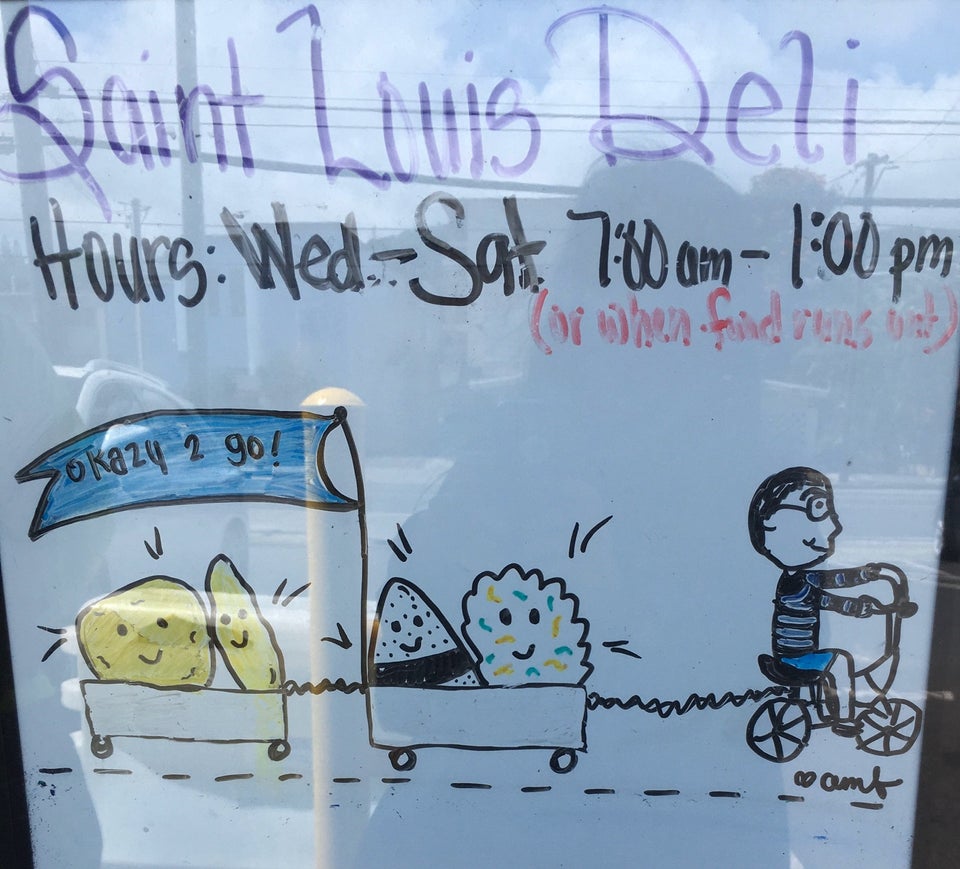 Saint Louis Deli
Hours: Wed.-Sat. 7:00 am - 1:00 pm
(or when food runs out)
okazy 2 go!